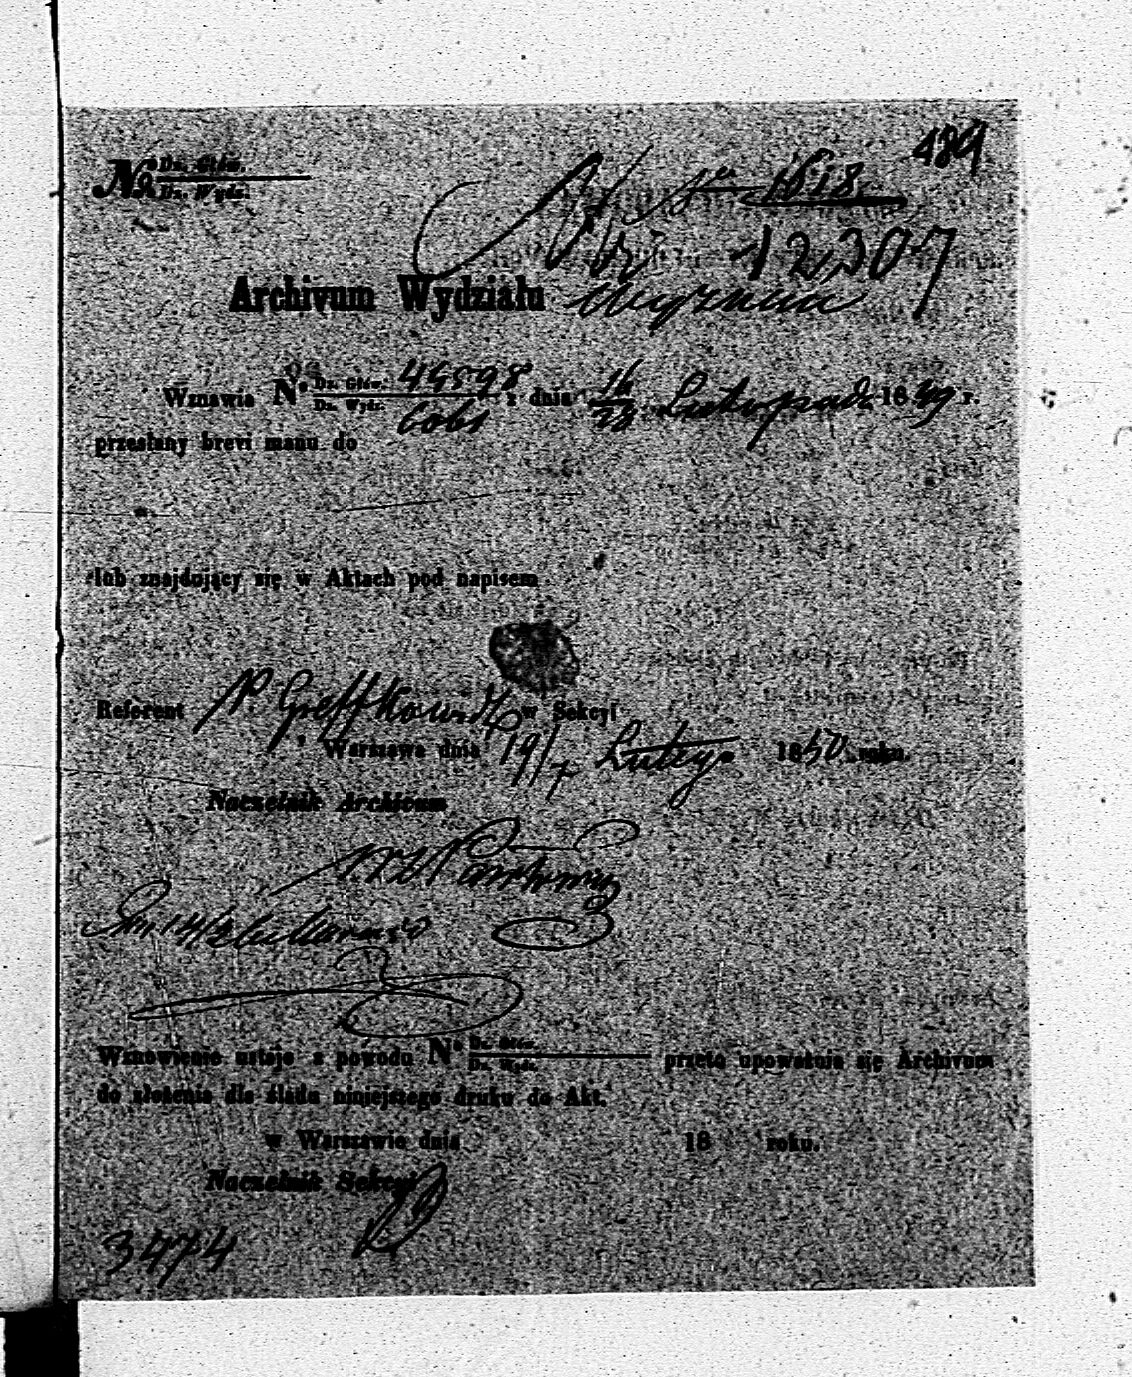 489
No Dz. Głów.
Dz. Wydz.
1818
12307
Archivum Wydziału Wyznań
Wznawia No Dz. Głów. 49598 z dnia 16/28 Listopada 1849 r.
Dz. Wydz. 6061
przesłany brevi manu do
lub znajdujący się w Aktach pod napisem
Referent P. w Sekcyi
Warszawa dnia 19/7 Lutego 1850 roku.
Naczelnik Archivum
Wznowienie ustaje z powodu No Dz. Głów. przeto upoważnia się Archivum
Dz. Wydz.
do złożenia dla śladu niniejszego druku do Akt.
w Warszawie dnia 18 roku.
Naczelnik Sekcyi
3474